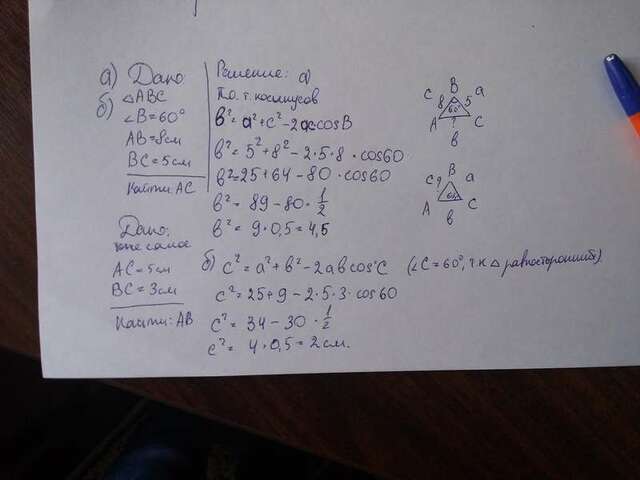 а) Дано
б) △ABC
∠B=60°
AB=8см
BC=5см
Найти: AC
Решение: а)
По т. косинусов
b²=a²+c²-2accosB
b²=5²+8²-2·5·8·cos60
b²=25+64-80·cos60
b²=89-80·1/2
b²=9·0,5=4,5
c B a
8 60° 5
A ? C
b
B
c ? a
60
A C
b
Дано:
самое
AC=5см
BC=3см
Найти: AB
б) c²=a²+b²-2abcos°C (∠C=60°, т.к △ равносторонний)
c²=25+9-2·5·3·cos60
c²=34-30·1/2
c²=4·0,5=2см.